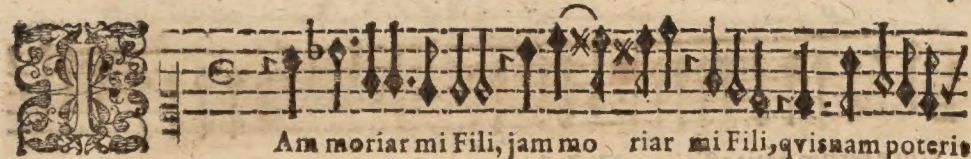 IAm moriar mi Fili, jam mo riar mi Fili, qvisnam poteris